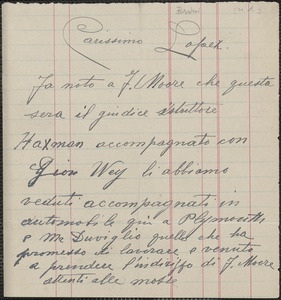 Carissimo Lopez.
Fa noto a F. Moore che questa
sera il giudice istruttore
Haxman accompagnato con
Gion Wey li abbiamo
veduti accompagnati in
automobile giù a Plymouth
e Mc Duviglio quello che ha
promesso di lavorare e venuto
a prendere l'indirisso di F. Moore
attenti alle mosse